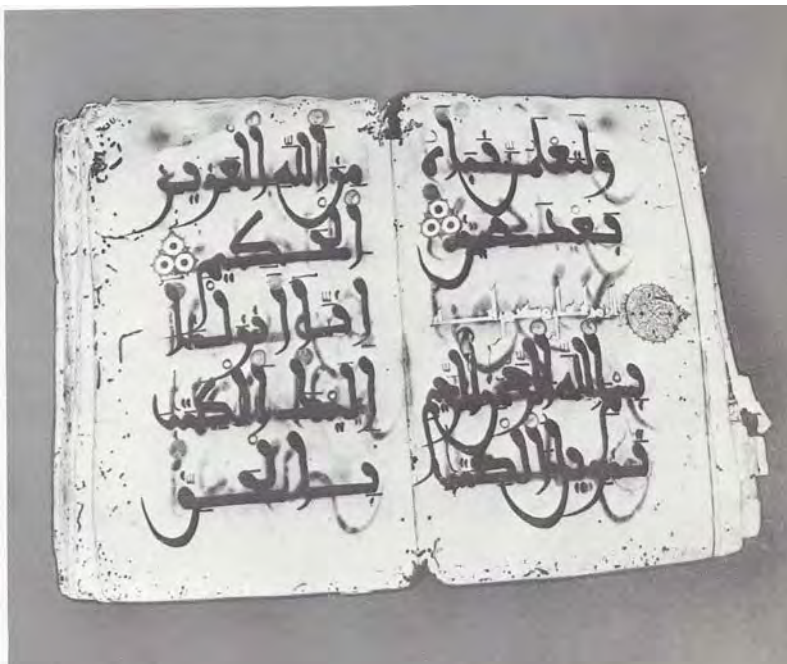 وَلَتَعْلَمُنَّ نَبَأَهُ
بَعْدَ حِينٍ
بِسْمِ اللَّهِ الرَّحْمَنِ الرَّحِيمِ
تَنزِيلُ الْكِتَبِ
مِنَ اللَّهِ الْعَزِيزِ
الْحَكِيمِ
إِنَّا أَنزَلْنَا
إِلَيْكَ الْكِتَبَ
بِالْحَقِّ